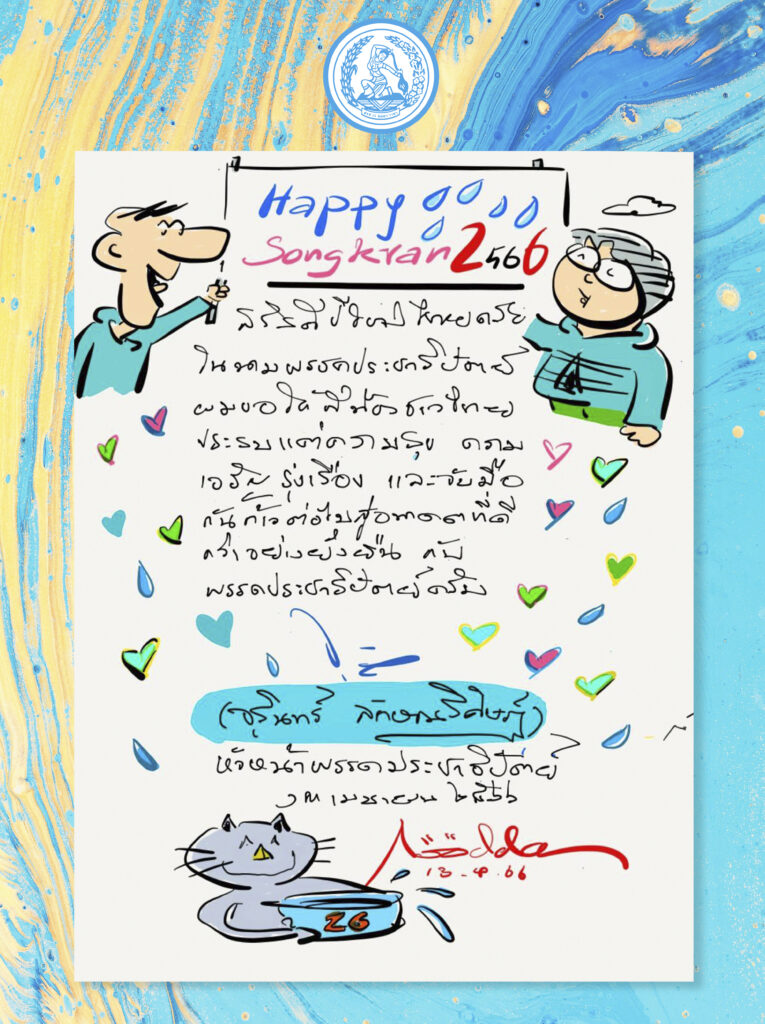 Happy
Songkran 2566
สวัสดีปีใหม่ไทยครับ
ในนามพรรคประชาธิปัตย์
ผมขอให้พี่น้องชาวไทย
ประสบแต่ความสุข ความ
เจริญ รุ่งเรือง และจับมือ
กันก้าวต่อไปสู่อนาคตที่ดี
กว่าอย่างยั่งยืน กับ
พรรคประชาธิปัตย์ครับ
(จุรินทร์ ลักษณวิศิษฏ์)
หัวหน้าพรรคประชาธิปัตย์
๑๓ เมษายน ๒๕๖๖
13-4-66
26